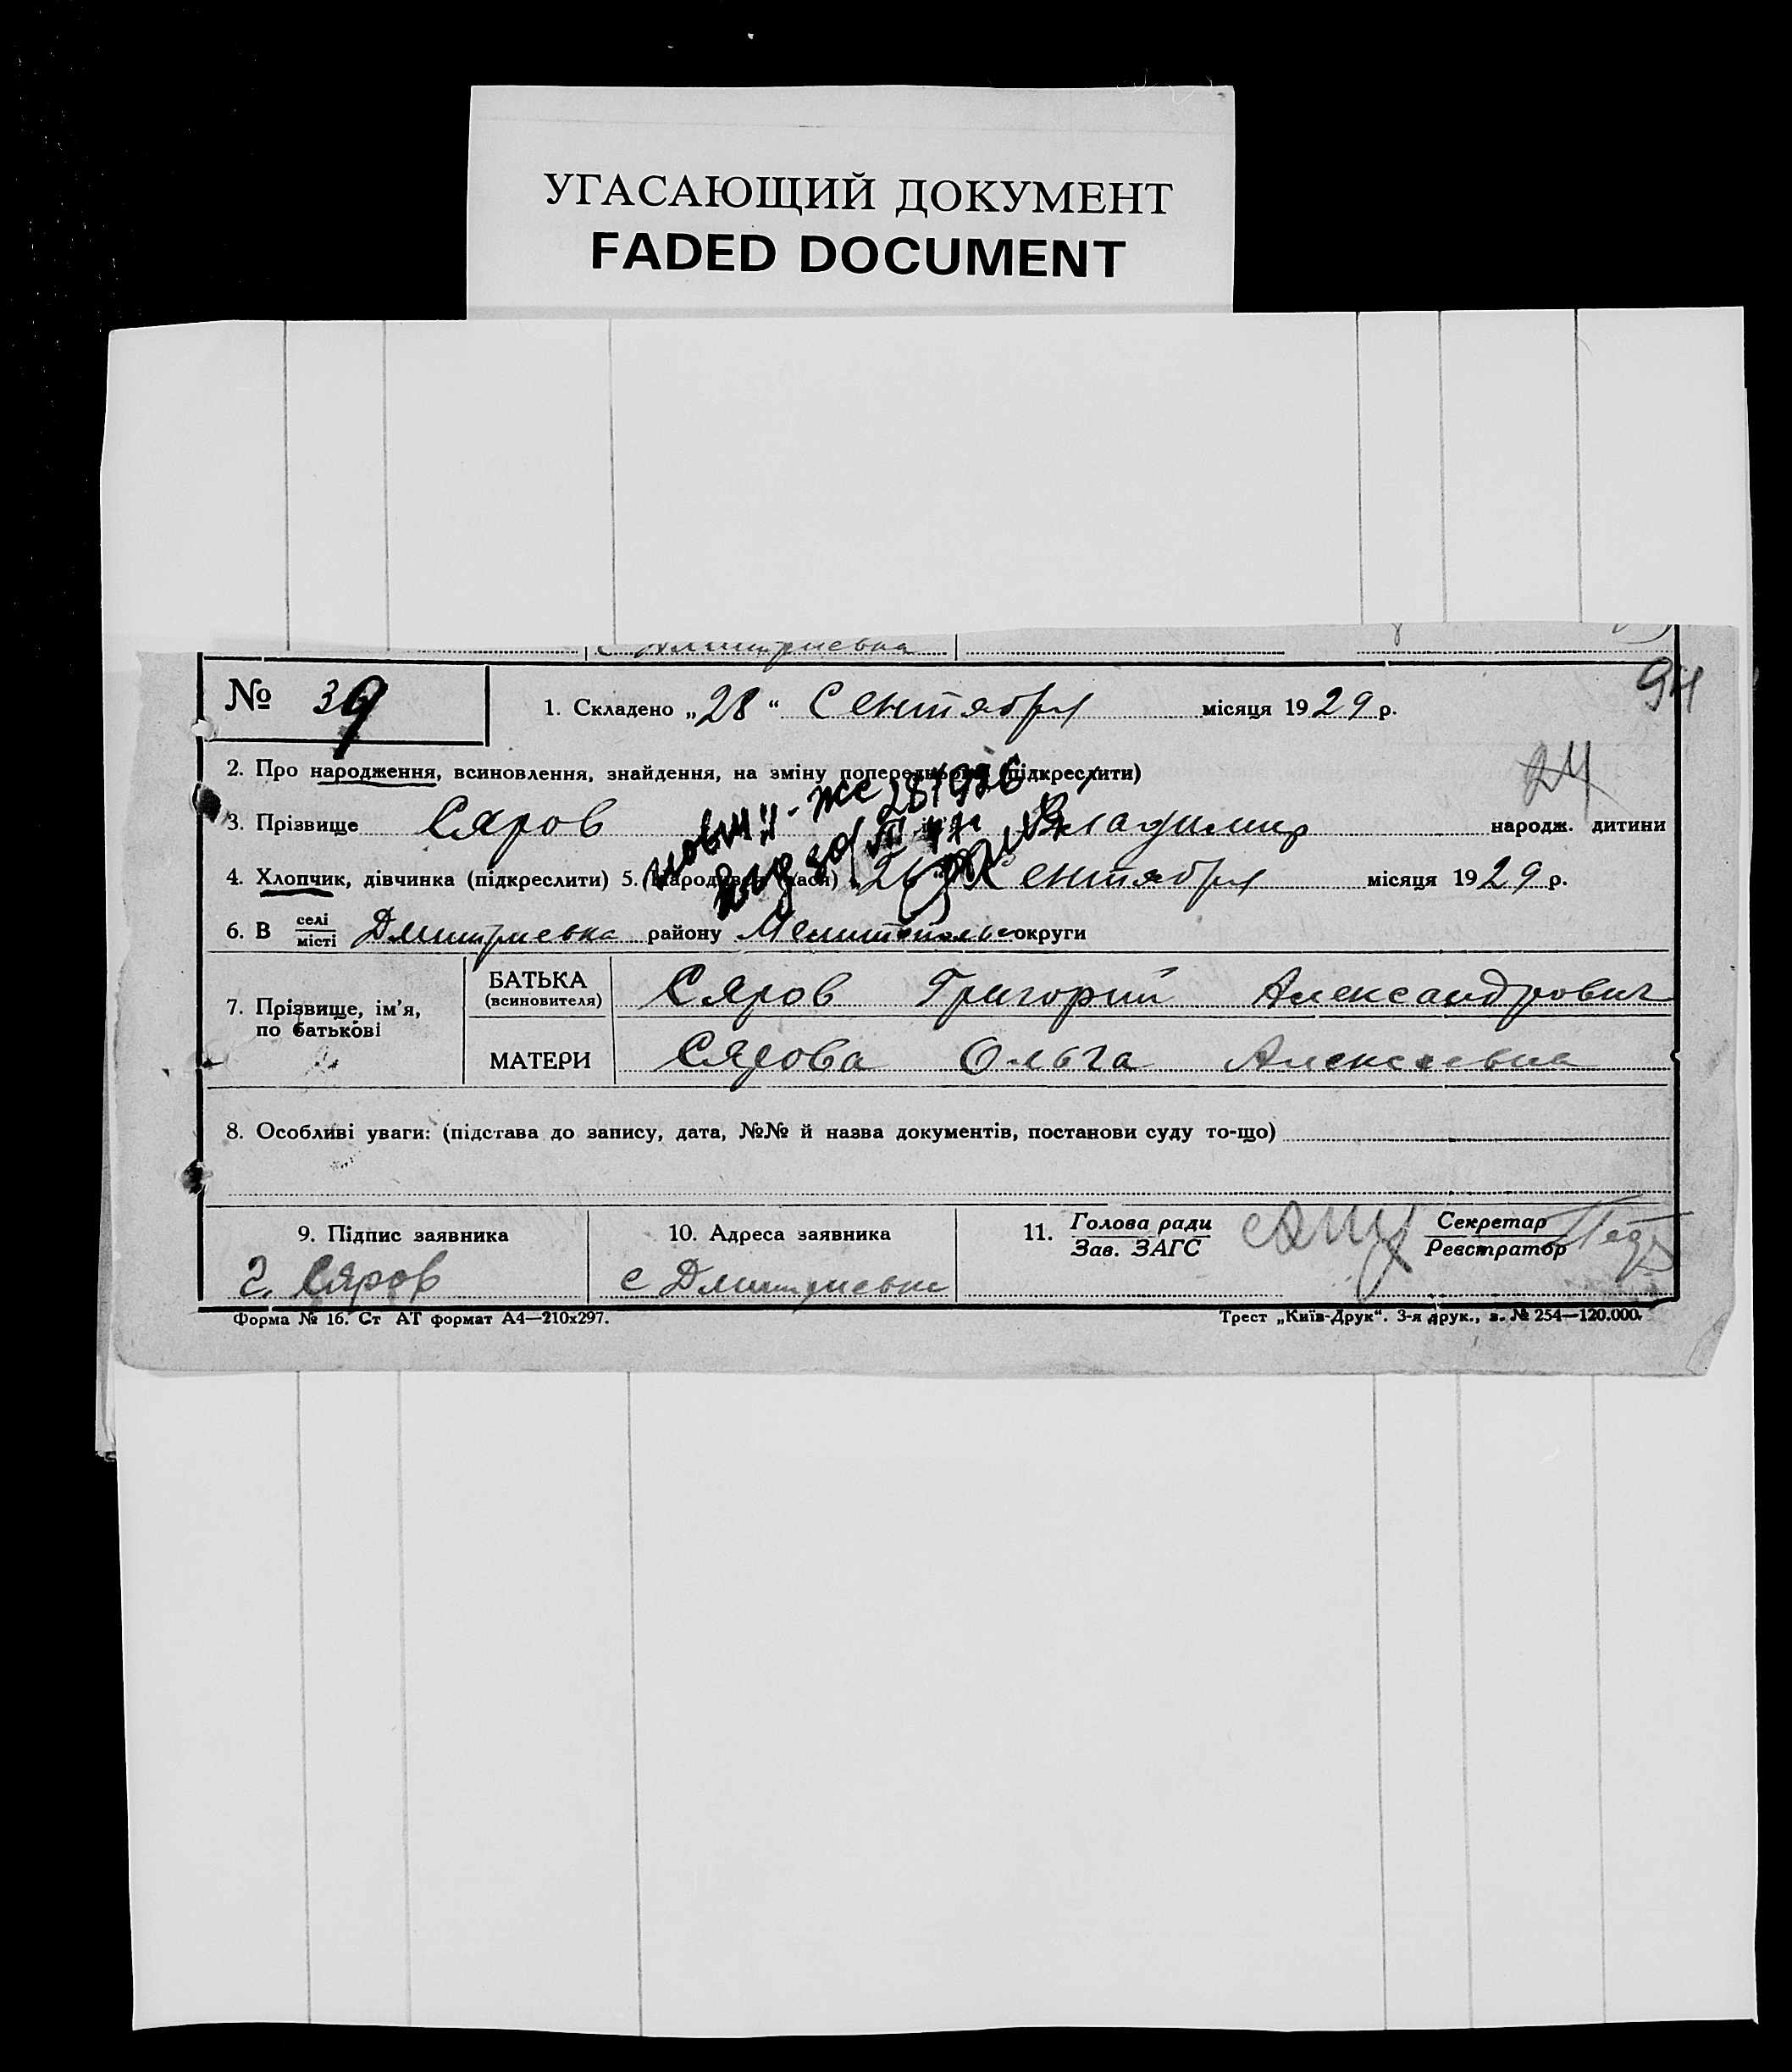 УГАСАЮЩИЙ ДОКУМЕНТ
FADED DOCUMENT
Дмитриевка
№ 39
1. Складено „28“ Сентября місяця 1929 р.
94
2. Про народження, всиновлення, знайдення, на зміну попереднього (підкреслити)
24
3. Прізвище Сяров Владимир народж. дитини
4. Хлопчик, дівчинка (підкреслити) 5. Народився (лася) 26 Сентября місяця 1929 р.
6. В селі/місті Дмитриевка району округи
7. Прізвище, ім'я, по батькові
БАТЬКА (всиновителя) Сяров Григорий Александрович
МАТЕРИ Сярова Ольга Алексеевна
8. Особливі уваги: (підстава до запису, дата, №№ й назва документів, постанови суду то-що)
9. Підпис заявника
10. Адреса заявника
11. Голова ради/Зав. ЗАГС
Секретар/Реєстратор
Г. Сяров
с Дмитриевка
Форма № 16. Ст АТ формат А4—210х297.
Трест „Київ-Друк“. 3-я друк., з. № 254—120.000.